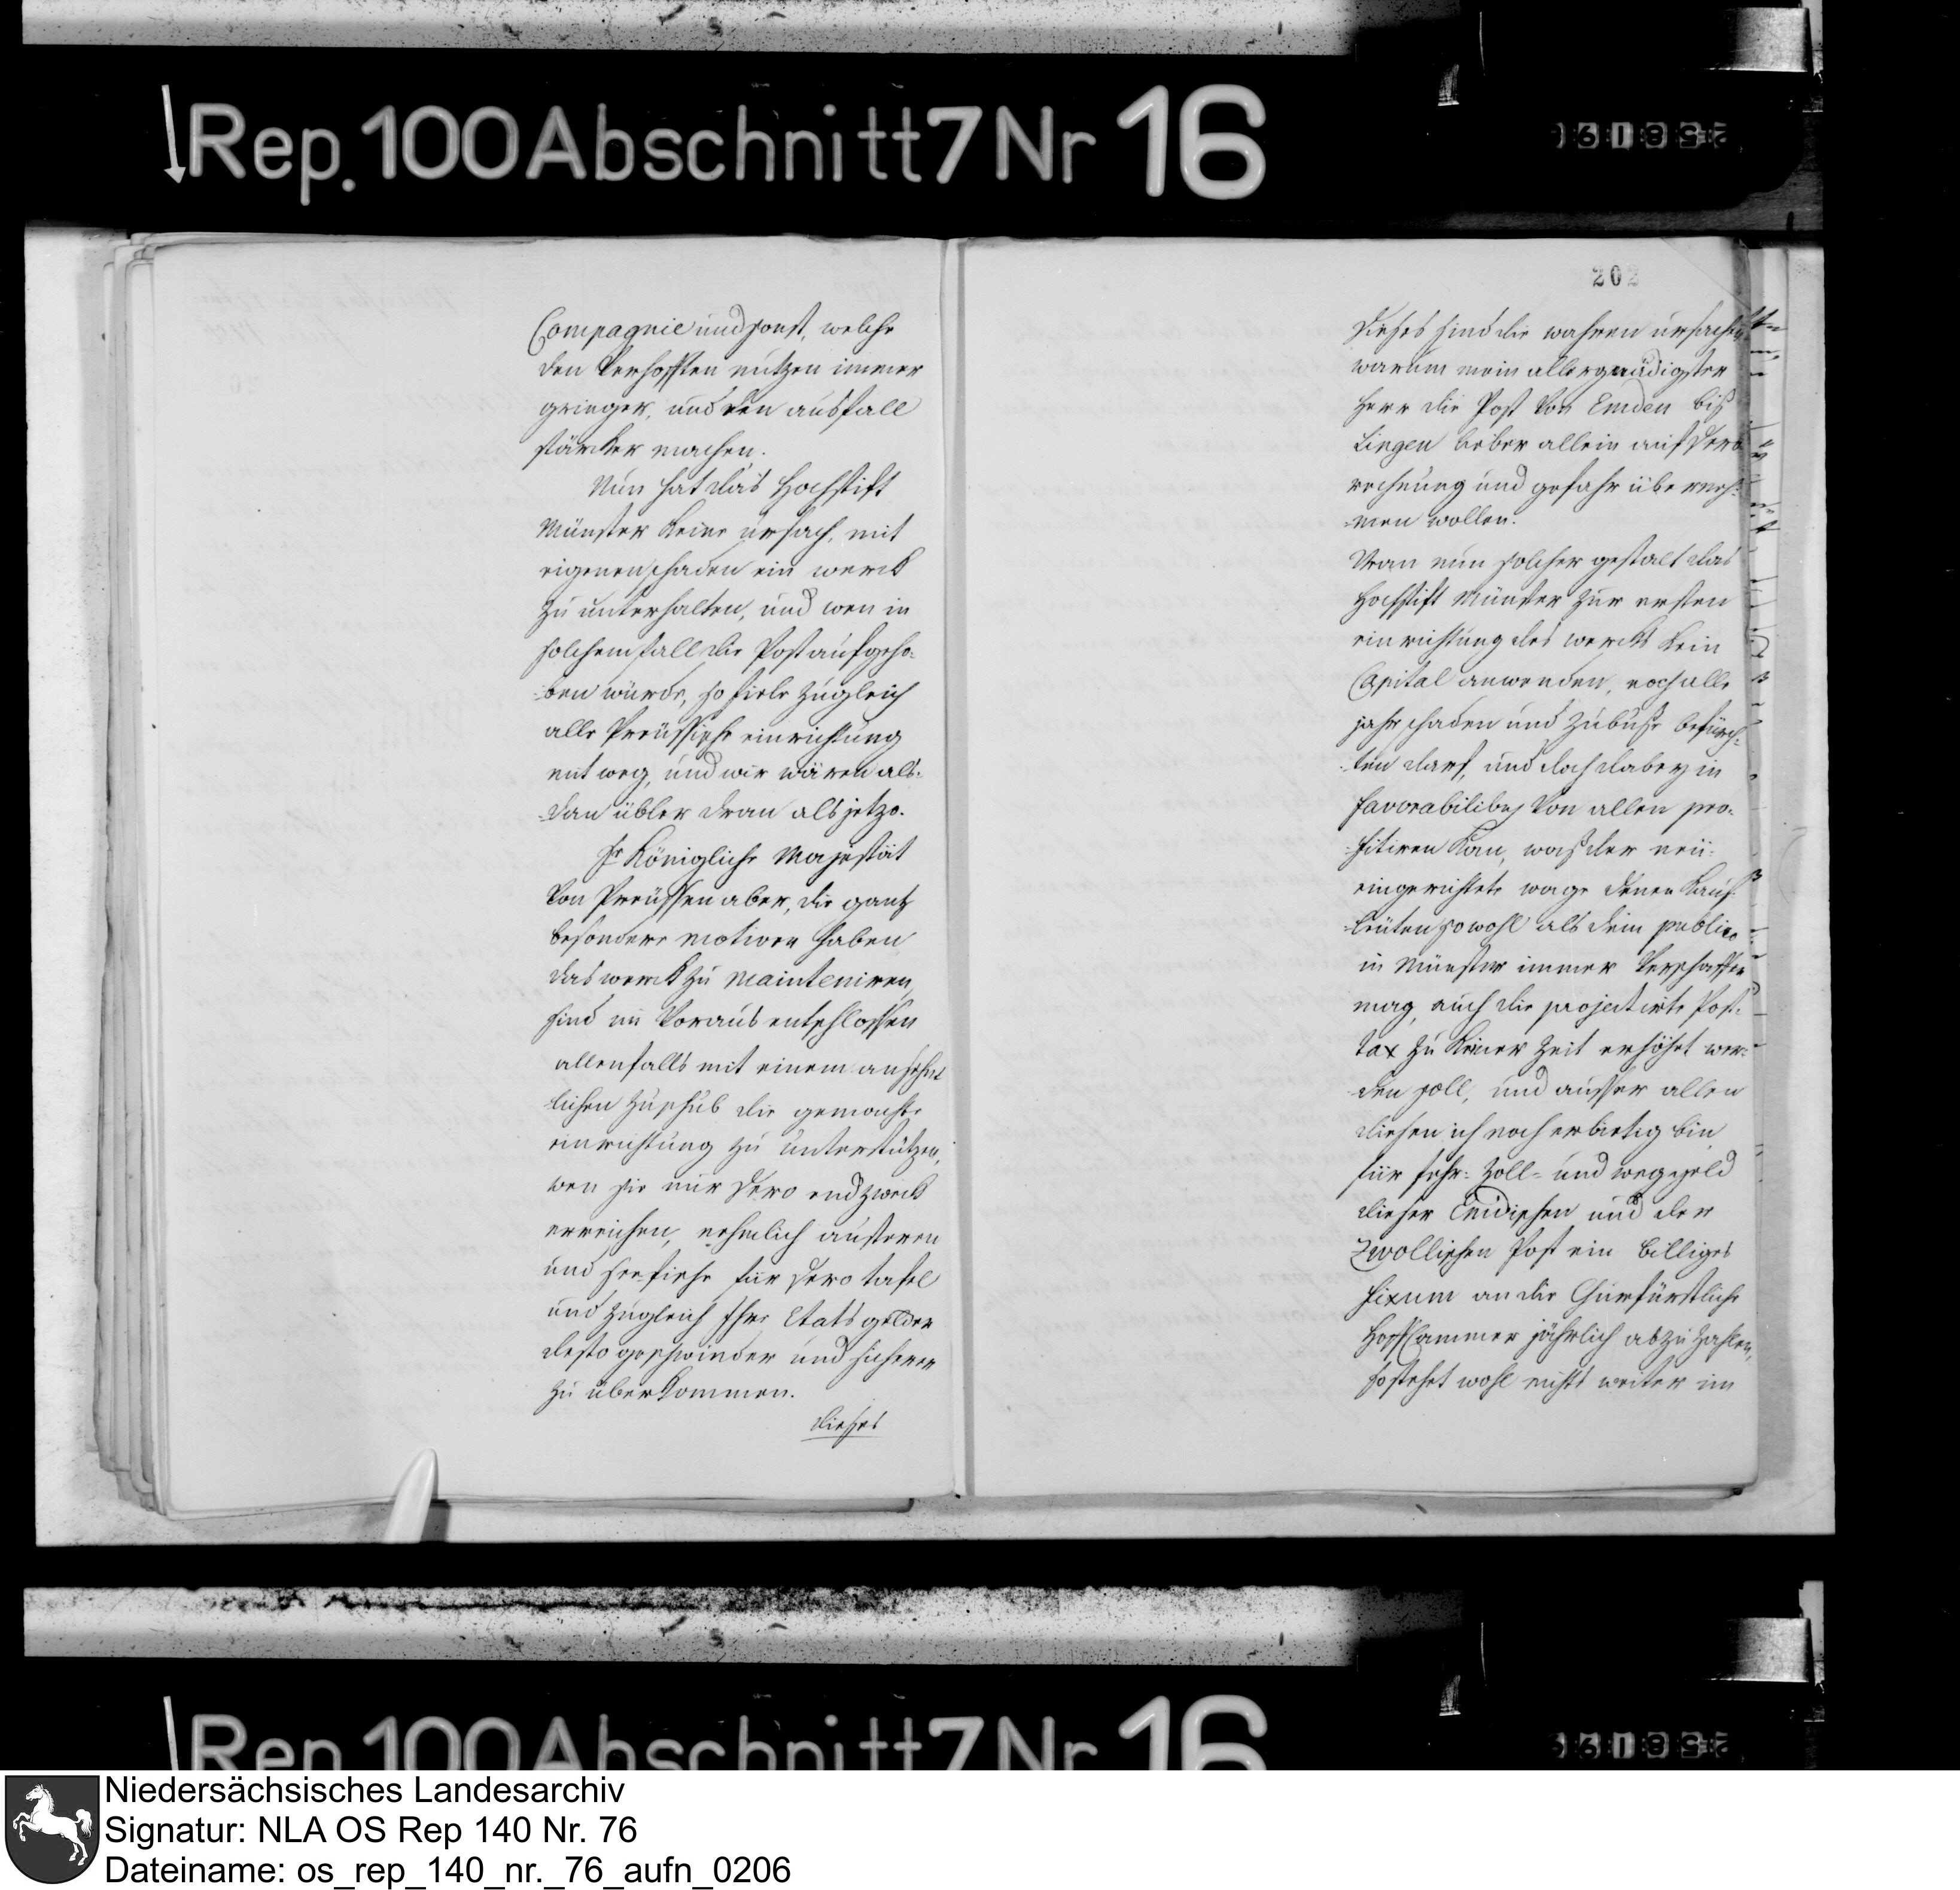 Rep. 100 Abschnitt 7 Nr 16
Compagnie und sonst, welche
den Verhofften nutzen immer
gringer, und den ausfall
stärcker machen.
Nun hat das Hochstift
Münster keine ursach, mit
eigenen schaden ein werck
zu unterhalten, und wen in
solchem fall die Post aufgeho-
-ben würde, so fiele zugleich
alle Preüssische einrichtung
mit weg, und wir wären als-
-dan übler dran als jetzo.
Sr Königliche Majestät
Von Preüssen aber, die gantz
besondere motiven haben
das werck zu mainteniren,
sind im Voraus entschlossen
allenfalls mit einem ansehn
lichen Zuschub die gemachte
einrichtung zu unterstützen,
wen sie nur Dero endzweck
erreichen, nehmlich austeren
und seefische für Dero tafel
und zugleich Ihre Etats gelder
desto geschwinder und sicherer
zu überkommen.
dieses
202
Dieses sind die wahren ursachen
warum mein allergnädigster
Herr die Post Von Emden biß
Lingen lieber allein auf Dero
rechnung und gefahr überneh-
-men wollen.
Wan nun solcher gestalt das
Hochstift Münster zur ersten
einrichtung des wercks kein
Capital anwenden, noch alle
jahr schaden und Zubuße befürch-
-ten darf, und doch dabey in
favorabilibus Von allen pro-
-fitiren kan, was der neü-
eingerichtete wage denen Kauf-
leüten sowohl als dem publico
in Münster immer Verschaffen
mag, auch die projectirte Post-
tax zu keiner Zeit erhöhet wer-
-den soll, und ausser allen
diesen ich noch erbietig bin
für fehr- Zoll- und weggeld
dieser Emdischen und der
Zwollischen Post ein billiges
fixum an die Churfürstliche
HoffCammer jährlich abzuzahlen,
so stehet wohl nichts weiter im
Rep. 100 Abschnitt 7 Nr 16
Niedersächsisches Landesarchiv
Signatur: NLA OS Rep 140 Nr. 76
Dateiname: os_rep_140_nr._76_aufn_0206